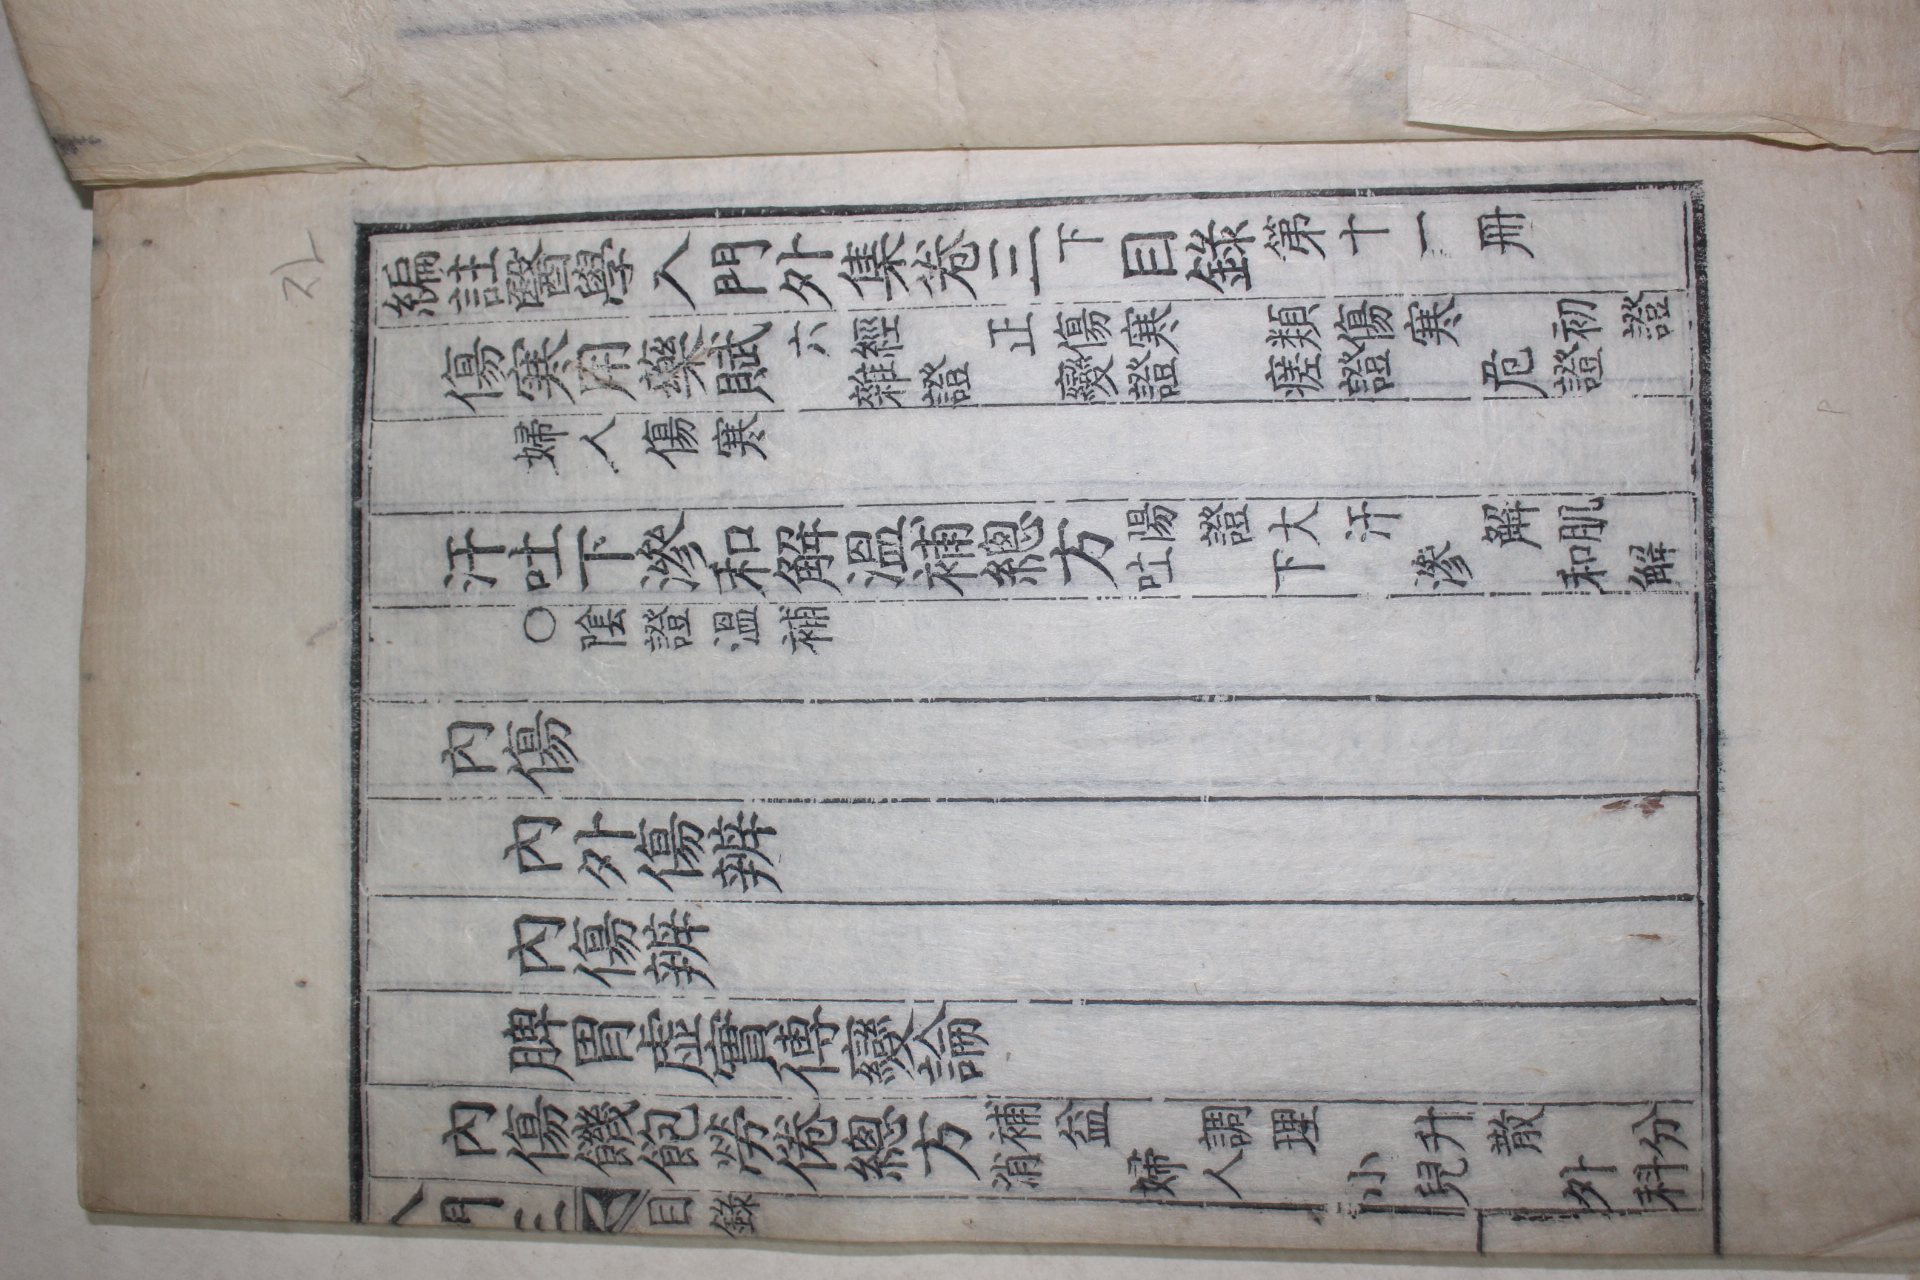 編註醫學入門外集卷三下目錄第十一冊
傷寒用藥賦 六經正傷寒類傷寒初證
雜證變證瘥證危證
婦人傷寒
汗吐下滲和解溫補總方 陽證大汗解肌
吐下滲和解
○陰證溫補
內傷
內外傷辨
內傷辨
脾胃虛實傳變論
內傷饑飽勞倦總方 補益調理升散分
消婦人小兒外科
入門三 目錄